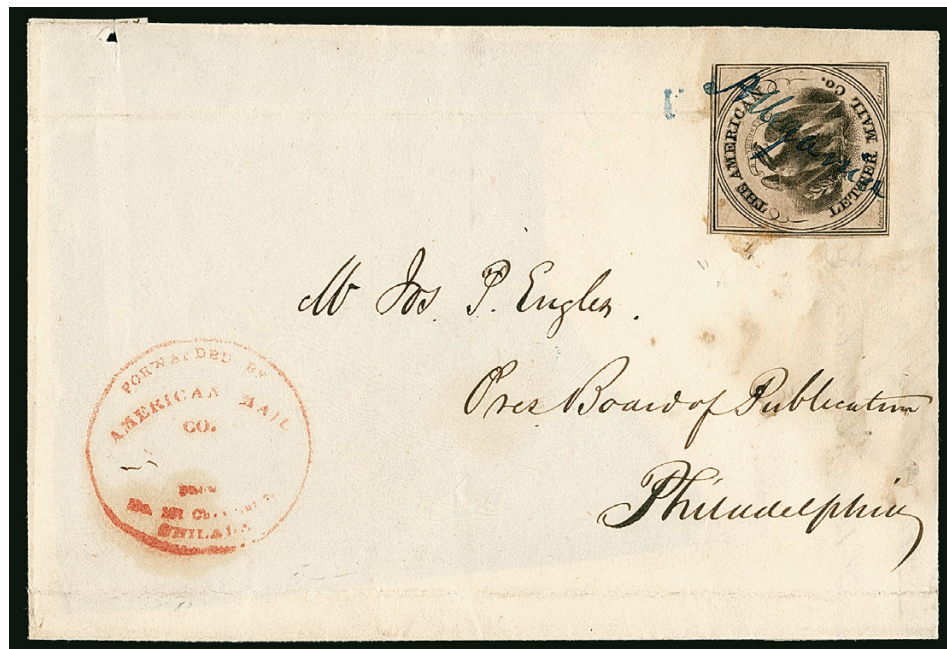 THE AMERICAN LETTER MAIL CO.
Mr Jos. P. Engles.
Pres Board of Publication
Philadelphia
FORWARDED BY
AMERICAN MAIL
CO.
From
No. 101
PHILADA